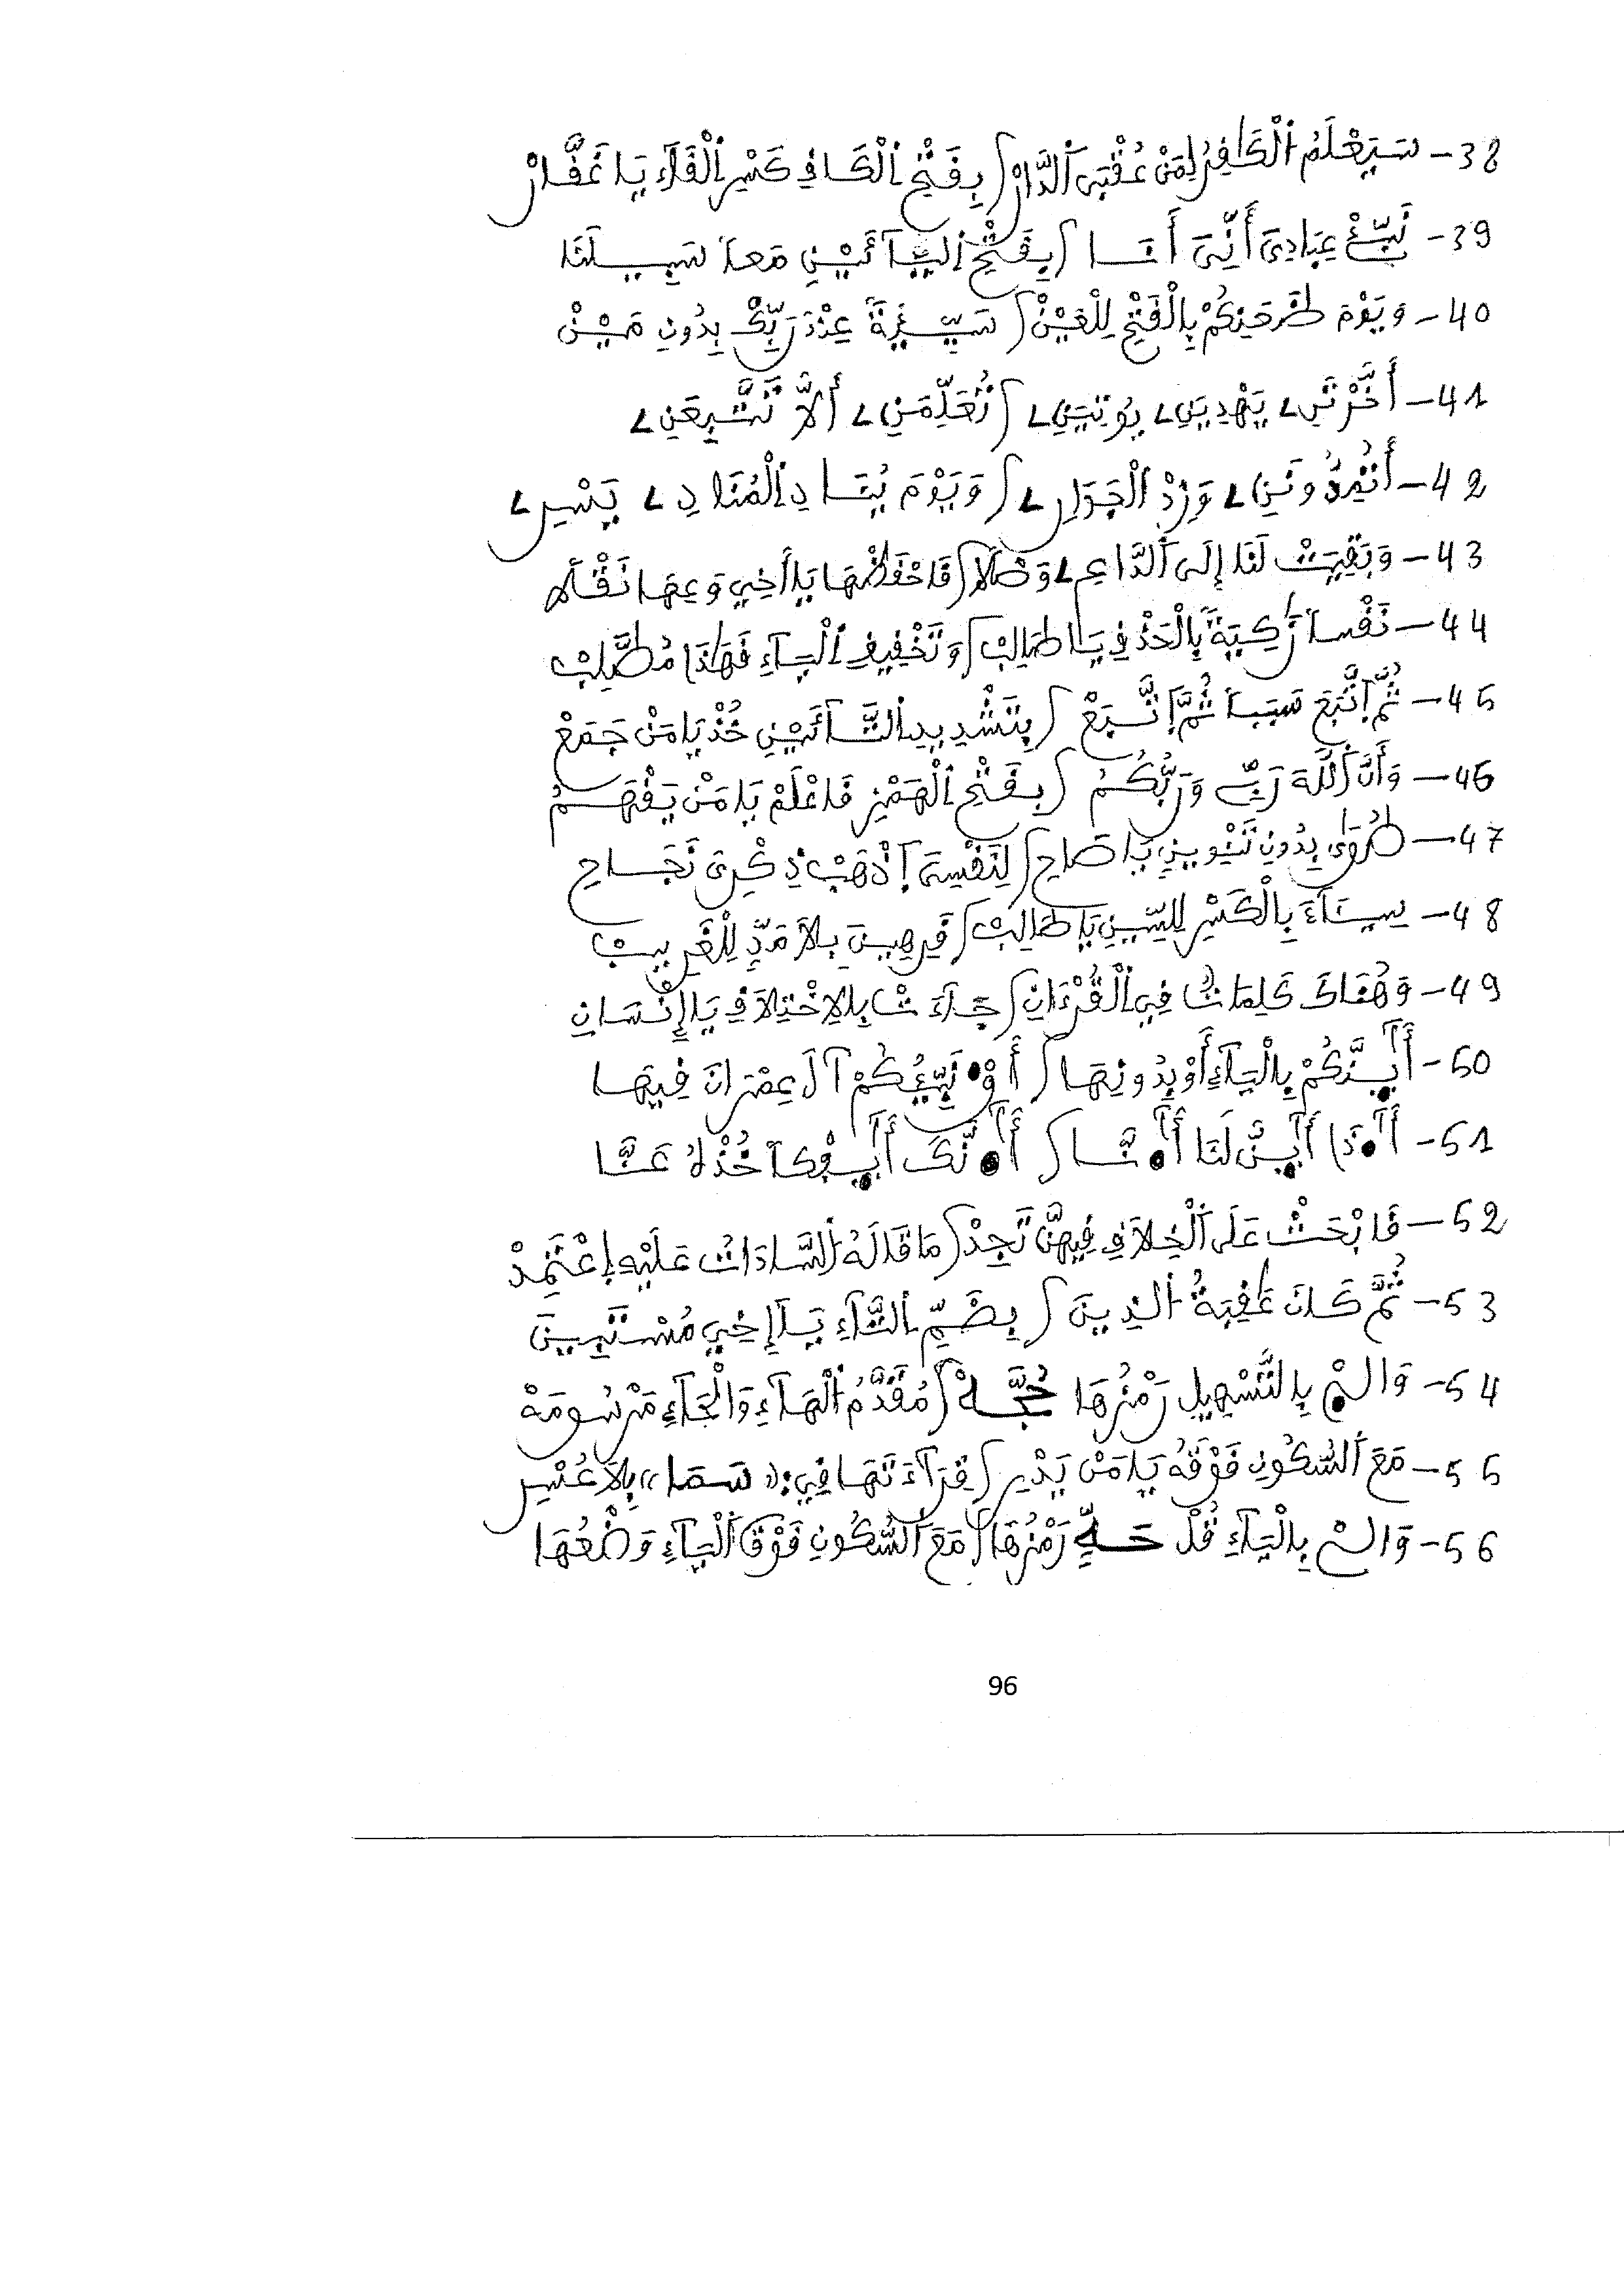 38- سَيَعْلَمُ اَلْكَافِرُ لِمَنْ عُقْبَى اَلدَّارْ / بِفَتْحِ اَلْكَافِ كَسْرِ اَلْفَآءِ يَا غَفَّارْ
39- نَبِّئْ عِبَادِيَ أَنِّيَ أَنَا / بِفَتْحِ اَلْيَآئَيْنِ مَعاً سَبِيلَنَا
40- وَيَوْمَ ظَعَنِكُمْ بِالْفَتْحِ لِلْعَيْنْ / سَيِّئَةً عِنْدَ رَبِّكَ بِدُونِ مَيْنْ
41- أَخَّرْتَنِ يَهْدِيَنِ يُوتِيَنِ / تُعَلِّمَنِ أَلاَّ تَتَّبِعَنِ
42- أَتُمِدُّونَنِ وَزِدْ اَلْجَوَارِ / وَيَوْمَ يُنَادِ اِلْمُنَادِ يَسْرِ
43- وَبَقِيَتْ لَنَا إِلَى اَلدَّاعِ وَصْلاَ / فَاحْفَظْهَا يَا أَخِي وَعِهَا نَقْلاَ
44- نَفْساً زَكِيَةً بِالْحَذْفِ يَا طَالِبْ / وَتَخْفِيفِ اِلْيَآءِ فَهَذَا مُطَّلِبْ
45- ثُمَّ اِتَّبَعَ سَبَباً ثُمَّ اِتَّبَعْ / بِتَشْدِيدِ اِلتَّآئَيْنِ خُذْ يَا مَنْ جَمَعْ
46- وَأَنَّ اَللَّهَ رَبِّي وَرَبُّكُمُ / بِفَتْحِ اِلْهَمْزِ فَاعْلَمْ يَا مَنْ يَفْهَمُ
47- طُوَى بِدُونِ تَنْوِينٍ يَا صَاحِ / لِنَفْسِيَ اَذْهَبْ ذِكْرِيَ نَجَاحِ
48- سِيئَآءَ بِالْكَسْرِ لِلسِّينِ يَا طَالِبْ / فَرِهِينَ بِلاَ مَدٍّ لِلْغَرِيبْ
49- وَهُنَاكَ كَلِمَاتٌ فِي اِلْقُرْءَانِ / جَآءَتْ بِالاِخْتِلاَفِ يَا إِنْسَانِ
50- أَاَيِنَّكُمْ بِالْيَآءِ أَوْ بِدُونِهَا / أَوُ۬نَبِّئُكُمْ آلَ عِمْرَانَ فِيهَا
51- أَا۟ذَا أَاَيِنَّ لَنَا أَا۟نَّا / أَا۟نَّكَ أَاَيِفْكاً خُذْهُ عَنَّا
52- فَابْحَثْ عَلَى اَلْخِلاَفِ فِيهِنَّ تَجِدْ / مَا قَالَهُ اُلسَّادَاتُ عَلَيْهِ اِعْتَمِدْ
53- ثُمَّ كَانَ عَاقِبَةُ اُلذِينَ / بِضَمِّ اِلتَّآءِ يَآ إِخِي مُسْتَبِينَ
54- وَالـمْ بِالتَّسْهِيلِ رَمْزُهَا حُجَّهْ / مُقَدَّمُ اُلْهَآءِ وَالْحَآءِ مَرْسُومَهْ
55- مَعَ اَلسُّكُونِ فَوْقَهُ يَا مَنْ يَدْرِ / قِرَآءَتَهَا فِي: «سَمَا» بِلاَ عُسْرِ
56- وَالـمْ بِالْيَآءِ قُلْ حَيٍّ رَمْزُهَا / مَعَ اَلسُّكُونِ فَوْقَ اَلْيَآءِ وَضْعُهَا
96